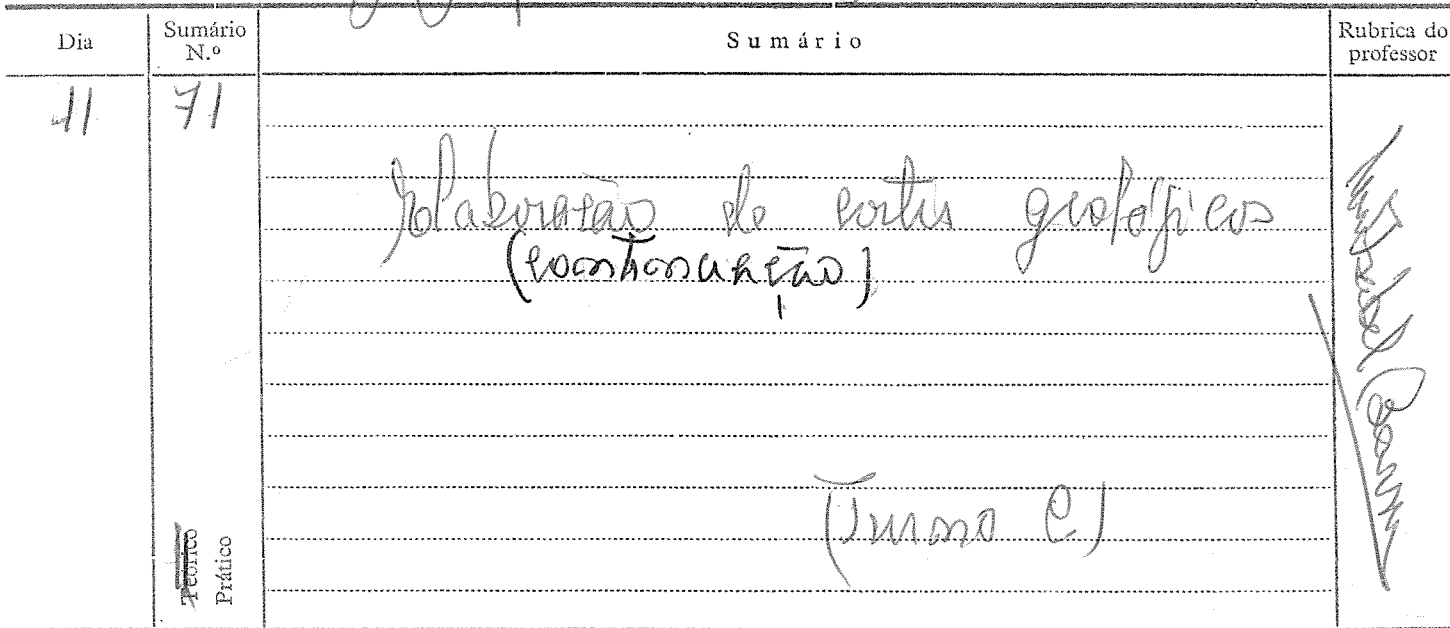 Dia
Sumário N.º
Sumário
Rubrica do professor
11
71
Elaboração de cortes geológicos
(continuação)
(Turno C)
Teórico
Prático